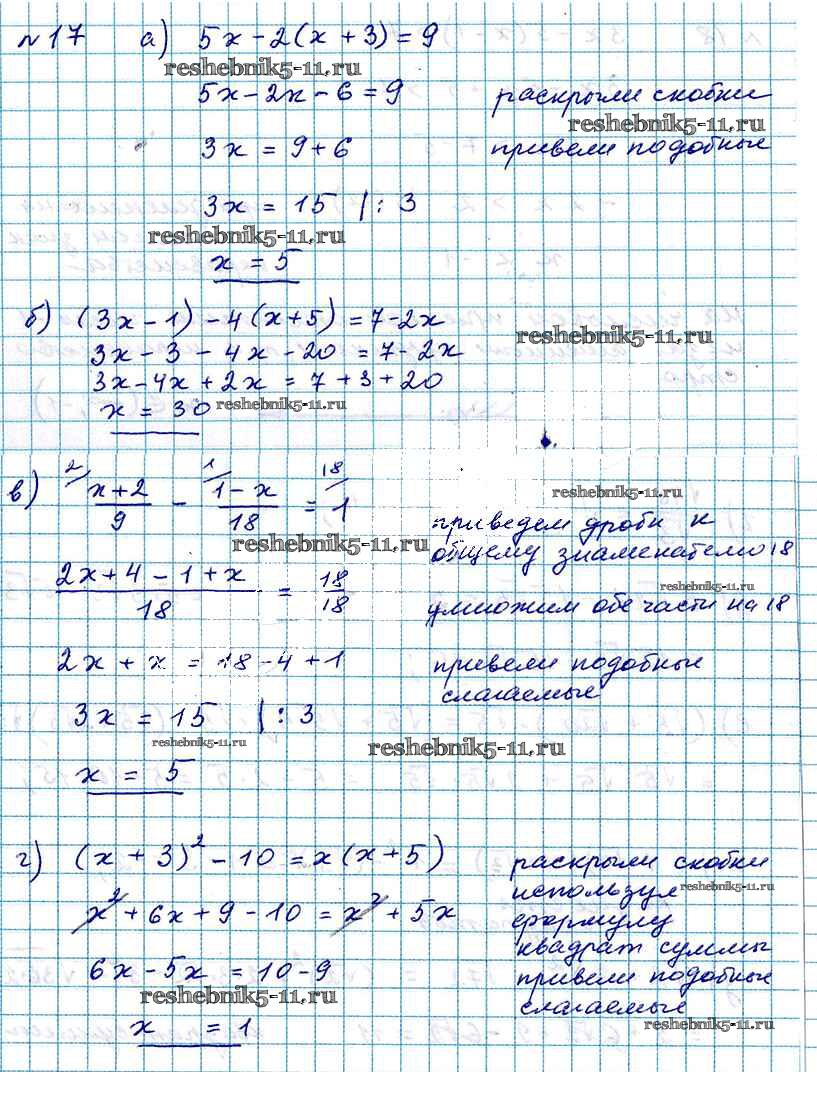 №17 а) 5x - 2(x + 3) = 9
reshebnik5-11.ru
5x - 2x - 6 = 9 раскрыли скобки
reshebnik5-11.ru
3x = 9 + 6 привели подобные
3x = 15 | : 3
reshebnik5-11.ru
x = 5
б) (3x - 1) - 4(x + 5) = 7 - 2x
reshebnik5-11.ru
3x - 3 - 4x - 20 = 7 - 2x
3x - 4x + 2x = 7 + 3 + 20
x = 30 reshebnik5-11.ru
в) 2/ (x + 2)/9 - 1/ (1 - x)/18 = 18/ 1
reshebnik5-11.ru
приведем дроби к
reshebnik5-11.ru
общему знаменателю 18
(2x + 4 - 1 + x)/18 = 18/18
reshebnik5-11.ru
умножим обе части на 18
2x + x = 18 - 4 + 1 привели подобные
слагаемые
3x = 15 | : 3
reshebnik5-11.ru
reshebnik5-11.ru
x = 5
г) (x + 3)² - 10 = x(x + 5) раскрыли скобки
используя reshebnik5-11.ru
x² + 6x + 9 - 10 = x² + 5x формулу
квадрат суммы
6x - 5x = 10 - 9 привели подобные
reshebnik5-11.ru
слагаемые
x = 1 reshebnik5-11.ru